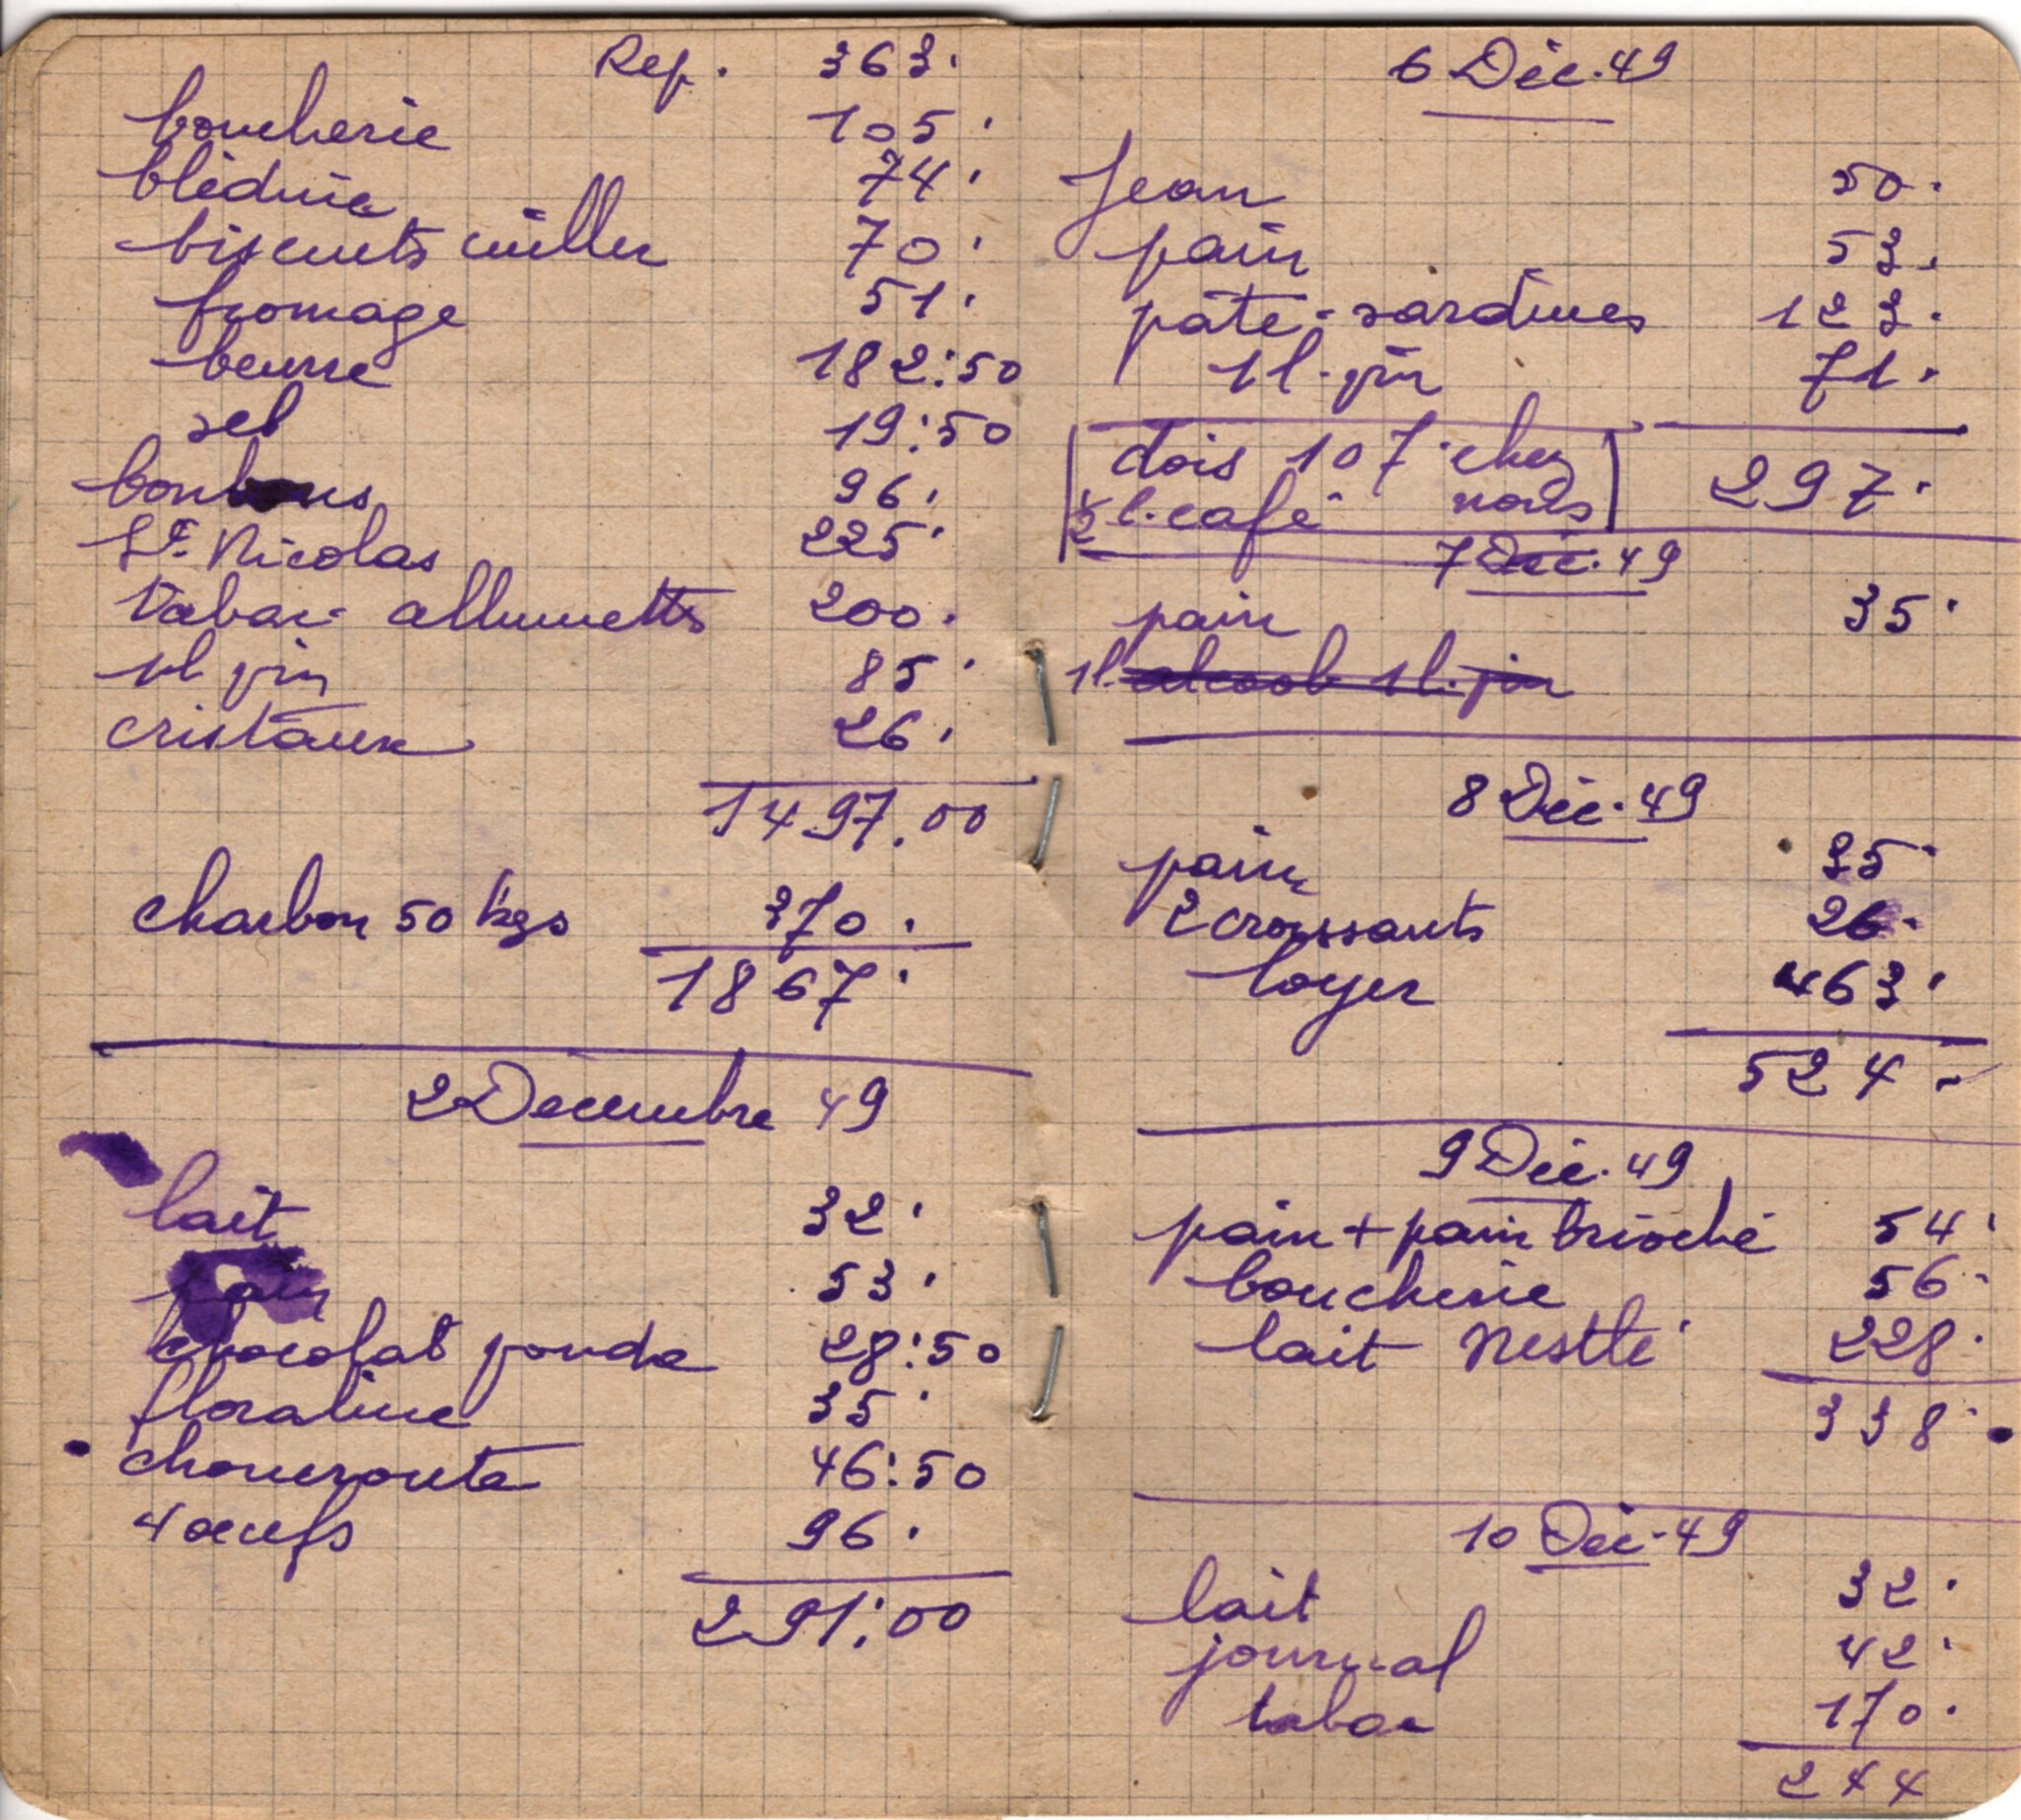 Rep. 363.
boucherie 105.
blédine 74.
biscuits cuiller 70.
fromage 51.
beurre 182:50
sel 19:50
bonbons 96.
St. Nicolas 225.
Tabac - allumettes 200.
1l vin 85.
cristaux 26.
1497.00
charbon 50 kgs 370.
1867.
2 Decembre 49
lait 32.
pain 53.
chocolat poudre 28:50
floraline 35.
choucroute 46:50
4 oeufs 96.
291:00
6 Déc. 49
Jean 50.
pain 53.
pâte - sardines 123.
1 l. vin 71.
dois 107. chez nous
297.
1/2 l. café
7 Déc. 49
pain 35.
1l. alcool 1l. vin
8 Déc. 49
pain 35.
2 croissants 26.
loyer 463.
524.
9 Déc. 49
pain + pain brioché 54.
boucherie 56.
lait Nestlé 228.
338.
10 Déc. 49
lait 32.
journal 42.
tabac 170.
244